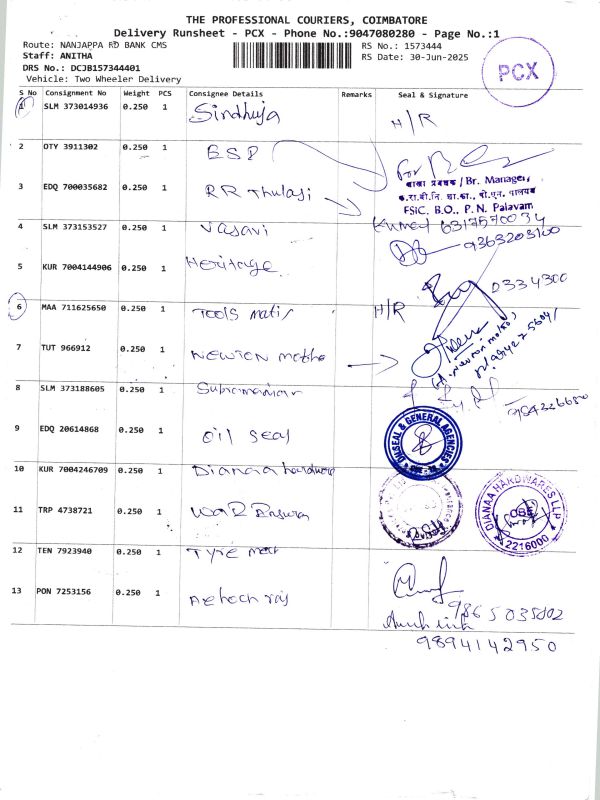 THE PROFESSIONAL COURIERS, COIMBATORE
Delivery Runsheet - PCX - Phone No.:9047080280 - Page No.:1
Route: NANJAPPA RD BANK CMS
RS No.: 1573444
Staff: ANITHA
RS Date: 30-Jun-2025
DRS No.: DCJB157344401
Vehicle: Two Wheeler Delivery
PCX
S No Consignment No Weight PCS Consignee Details Remarks Seal & Signature
1 SLM 373014936 0.250 1 Sindhuja H/R
2 OTY 3911302 0.250 1 ESP
For
शाखा प्रबंधक / Br. Manager,
3 EDQ 700035682 0.250 1 RR Thulasi
क.रा.बी.नि. शा.का., पी.एन. पालयम
FSIC. B.O., P. N. Palayam
4 SLM 373153527 0.250 1 Vasavi
9363203100
5 KUR 7004144906 0.250 1 Heritage
2334300
6 MAA 711625650 0.250 1 TOOLS H/R
7 TUT 966912 0.250 1 NEWTON
8 SLM 373188605 0.250 1
9 EDQ 20614868 0.250 1 Oil Seal
OILSEAL & GENERAL AGENCIES
10 KUR 7004246709 0.250 1 Dianaa hardware
DIANAA HARDWARES LLP
CBE
2216000
11 TRP 4738721 0.250 1
12 TEN 7923940 0.250 1 Tyre
13 PON 7253156 0.250 1
9865035802
9894142950